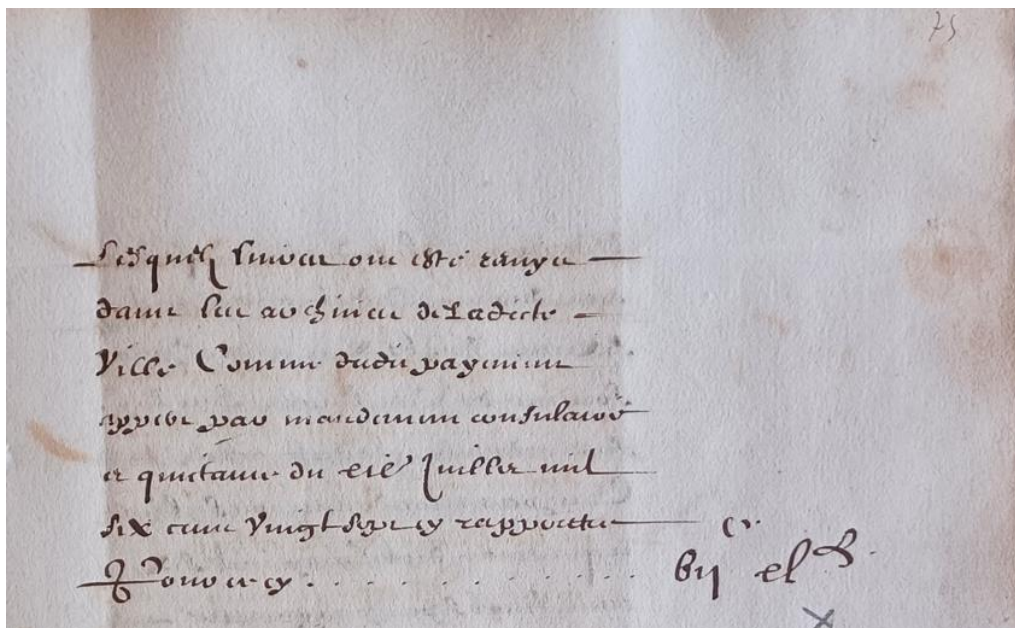 75
Lesquelz livres ont esté rangez
dans les archives de Ladicte
Ville Comme dudit payement
appert par mandement consulaire
et quictance du Juillet mil
six cens vingt sept cy rapportez
Pour cecy . . . . . . . . . . . .